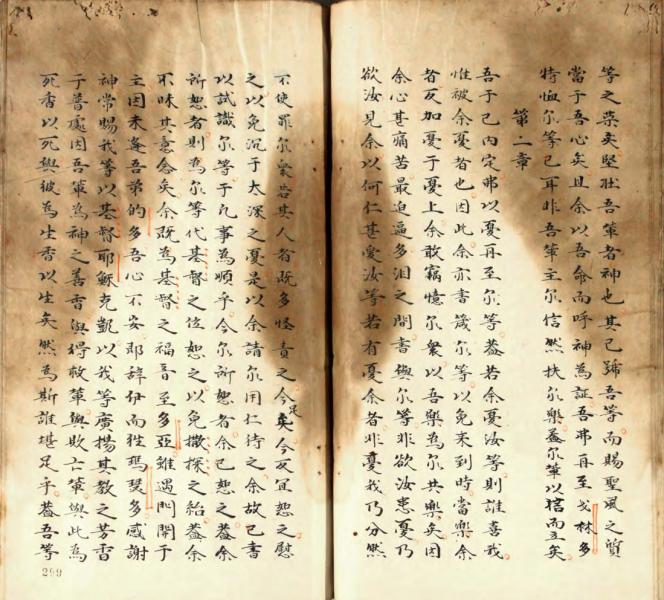 等之柒矣堅壯吾等者神也其已號吾等而賜聖風之質
當于吾心矣且余以吾命而呼神為証吾弗再至戈林多
特恤尔等已耳非吾輩主尔信然扶尔樂葢尔輩以信而立矣
第二章
吾于己內定弗以憂再至尔等葢若余憂汝等則誰喜我
惟被余憂者也因此余亦書箴尔等以免来到時當樂余
者反加憂于憂上余敢竊憶尔衆以吾樂為尔共樂矣因
余心甚痛苦最迫逼多泪之間書與尔等非欲汝患憂乃
欲汝見余以何仁甚愛汝等若有憂余者非憂我乃分然
不使罪尔衆若其人者既多怪責之今足矣今反宜恕之慰
之以免沉于太深之憂是以余請尔用仁待之余故已書
以試識尔等于凡事為順乎今尔所恕者余已恕之葢余
所恕者則為尔等代基督之位恕之以免撒探之紿葢余
不昧其意念矣余既為基督之福音至多亞雖遇門開于
主因未逢吾弟的多吾心不安即辞伊而徃瑪瑟多感謝
神常賜我等以基督耶穌克凱以我等廣揚其教之芳香
于普處因吾輩為神之善香與得救輩與敗亡輩與此為
死香以死與彼為生香以生矣然為斯誰堪足乎葢吾等
299